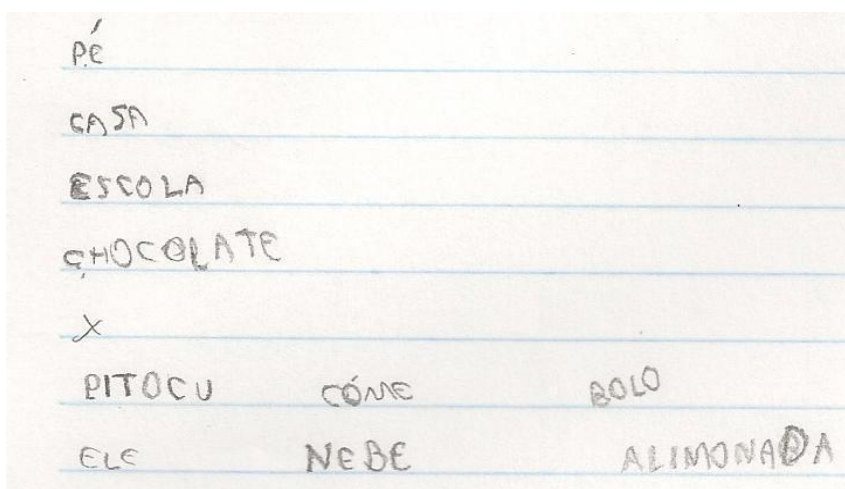 PÉ
CASA
ESCOLA
CHOCOLATE
X
PITOCU CÓME BOLO
ELE NEBE ALIMONADA